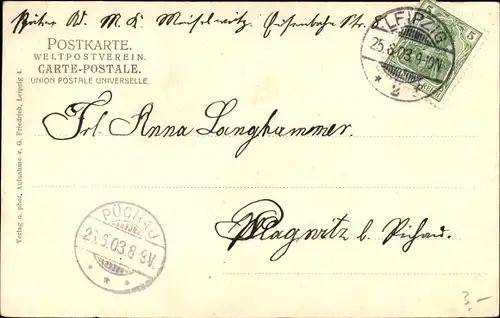 M. K. Meiselwitz, Eisenbahn Str.
POSTKARTE.
WELTPOSTVEREIN.
CARTE-POSTALE.
UNION POSTALE UNIVERSELLE.
5 5
LEIPZIG
25.6.03.9-10V.
* 2 *
Frl. Anna Langhammer.
Plagwitz b. Püchau.
PÜCHAU
25.6.03.8-9V.
* * *
Verlag u. phot. Aufnahme v. G. Friedrich, Leipzig 4.
3,-